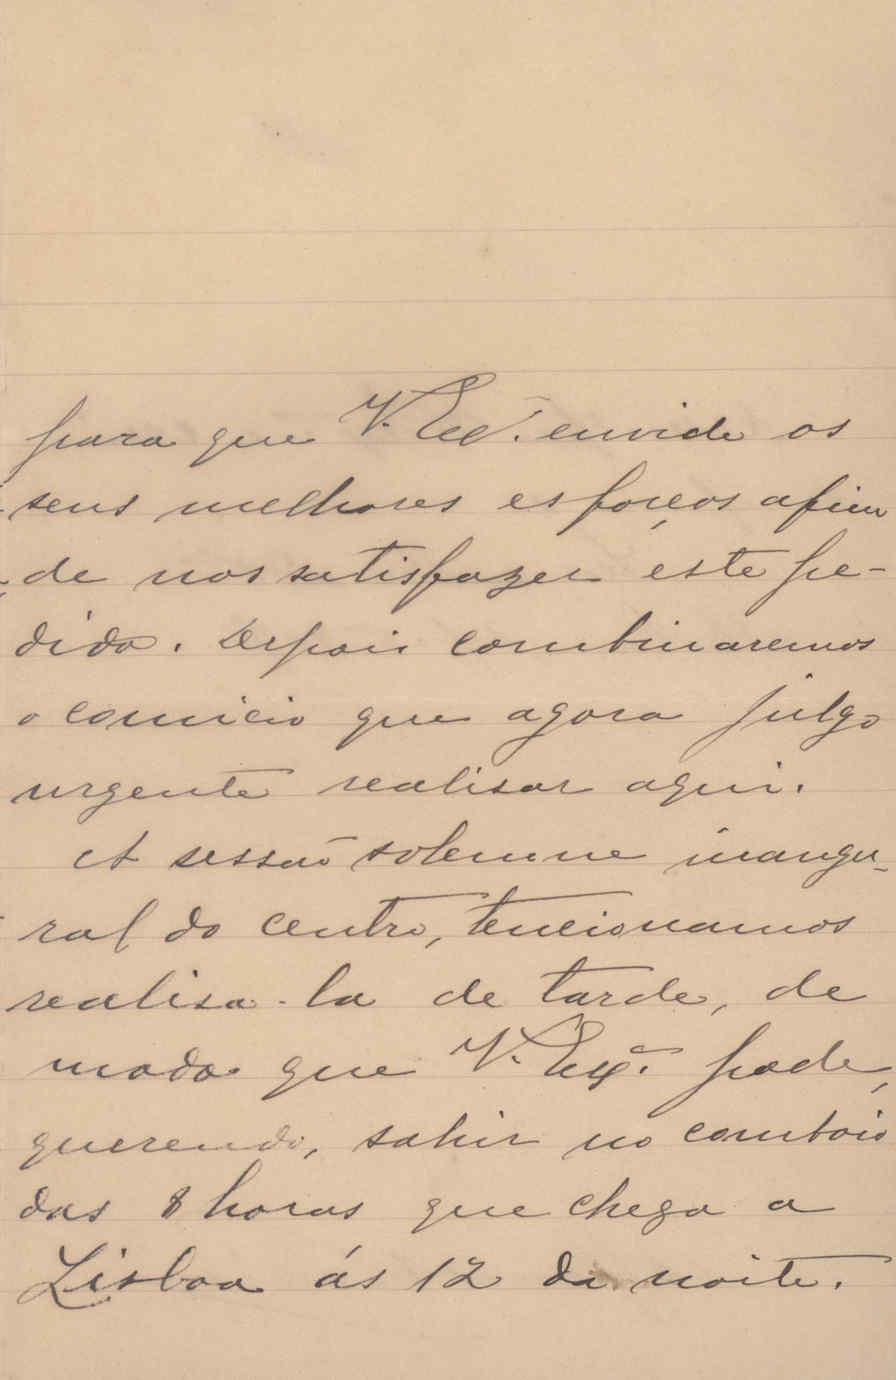 para que V. Exª. envide os
seus melhores esforços afim
de nos satisfazer éste pe-
dido. Depois combinaremos
o comicio que agora julgo
urgente realisar aqui.
A sessão solemne inaugu-
ral do centro, tencionamos
realisa-la de tarde, de
modo que V. Exª. pode,
querendo, sahir no comboio
das 8 horas que chega a
Lisboa ás 12 da noite.